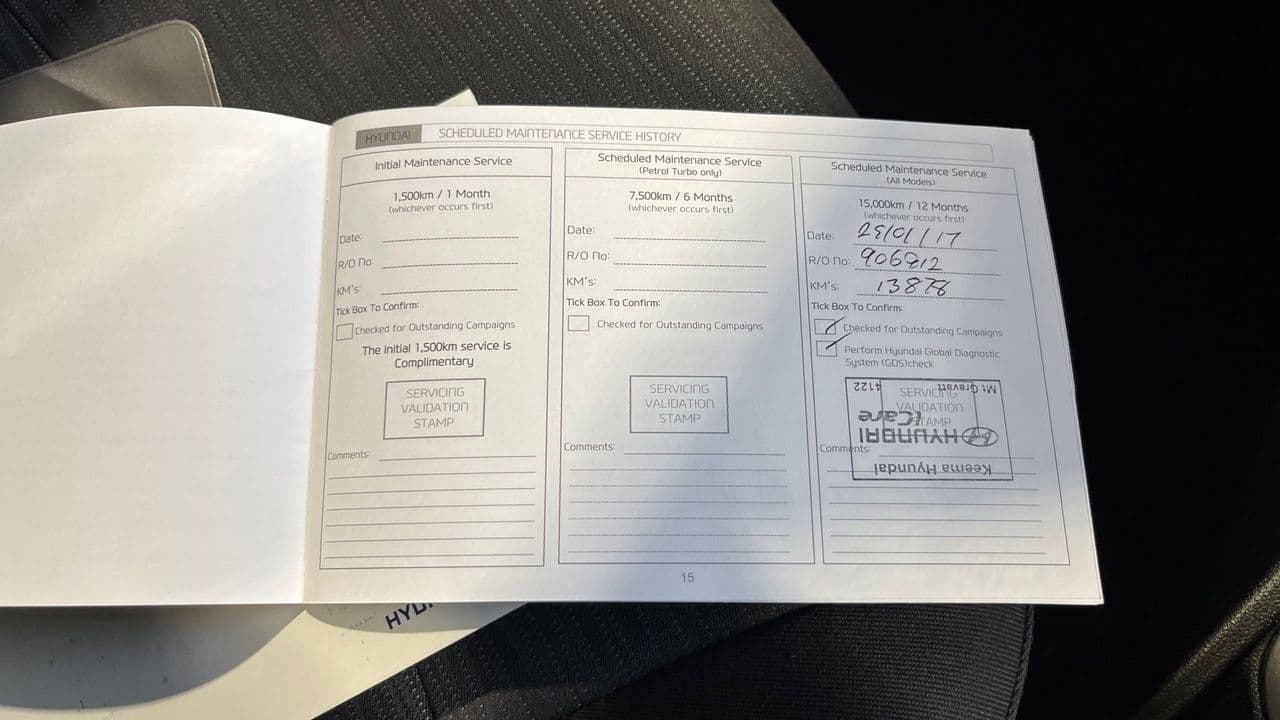 HYUNDAI SCHEDULED MAINTENANCE SERVICE HISTORY
Initial Maintenance Service
1,500km / 1 Month
(whichever occurs first)
Date:
R/O No:
KM's:
Tick Box To Confirm:
Checked for Outstanding Campaigns
The initial 1,500km service is
Complimentary
SERVICING
VALIDATION
STAMP
Comments:
Scheduled Maintenance Service
(Petrol Turbo only)
7,500km / 6 Months
(whichever occurs first)
Date:
R/O No:
KM's:
Tick Box To Confirm:
Checked for Outstanding Campaigns
SERVICING
VALIDATION
STAMP
Comments:
Scheduled Maintenance Service
(All Models)
15,000km / 12 Months
(whichever occurs first)
Date: /01/17
R/O No:
KM's: 13878
Tick Box To Confirm:
Checked for Outstanding Campaigns
Perform Hyundai Global Diagnostic
System (GDS)check
SERVICING
VALIDATION
STAMP
Comments:
Keema Hyundai
HYUNDAI
iCare
Mt Gravatt 4122
15
HYU